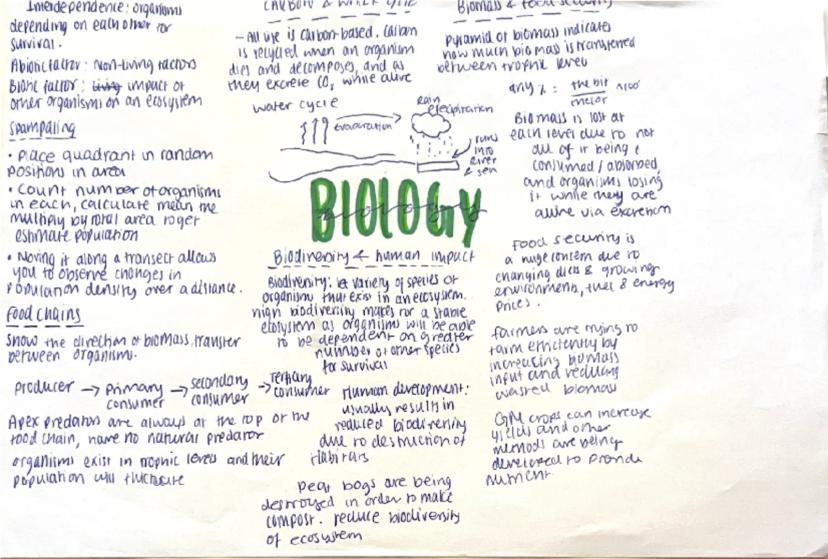 Interdependence: organisms
depending on each other for
survival.
Abiotic factor: Non-living factors
Biotic factor: living impact of
other organisms on an ecosystem
Sampling
• Place quadrant in random
positions in area
• Count number of organisms
in each, calculate mean the
multiply by total area to get
estimate population
• Moving it along a transect allows
you to observe changes in
population density over a distance.
Food chains
Show the direction of biomass transfer
between organisms.
Producer → primary consumer → secondary consumer → Tertiary consumer
Apex predators are always at the top of the
food chain, have no natural predator
organisms exist in trophic levels and their
population will fluctuate
Carbon & water cycle
- All life is carbon-based. Carbon
is recycled when an organism
dies and decomposes, and as
they excrete CO₂ while alive
water cycle
Evaporation
Rain
Precipitation
runs
into
river
sea
BIOLOGY
biology
Biodiversity & human impact
Biodiversity: variety of species of
organisms that exist in an ecosystem.
high biodiversity makes for a stable
ecosystem as organisms will be able
to be dependent on greater
number of other species
for survival
Human development:
usually results in
reduced biodiversity
due to destruction of
Habitats
Peat bogs are being
destroyed in order to make
compost. reduce biodiversity
of ecosystem
Biomass & food security
pyramid of biomass indicates
how much biomass is transferred
between trophic level
any % = the bit ×100
Biomass is lost at
each level due to not
all of it being
consumed / absorbed,
and organisms losing
it while they are
alive via excretion
Food security is
a huge concern due to
changing diets & growing
environments, fuel & energy
prices.
farmers are trying to
farm efficiently by
increasing biomass
input and reducing
wasted biomass
GM crops can increase
yields and other
methods are being
developed to provide
nutrient